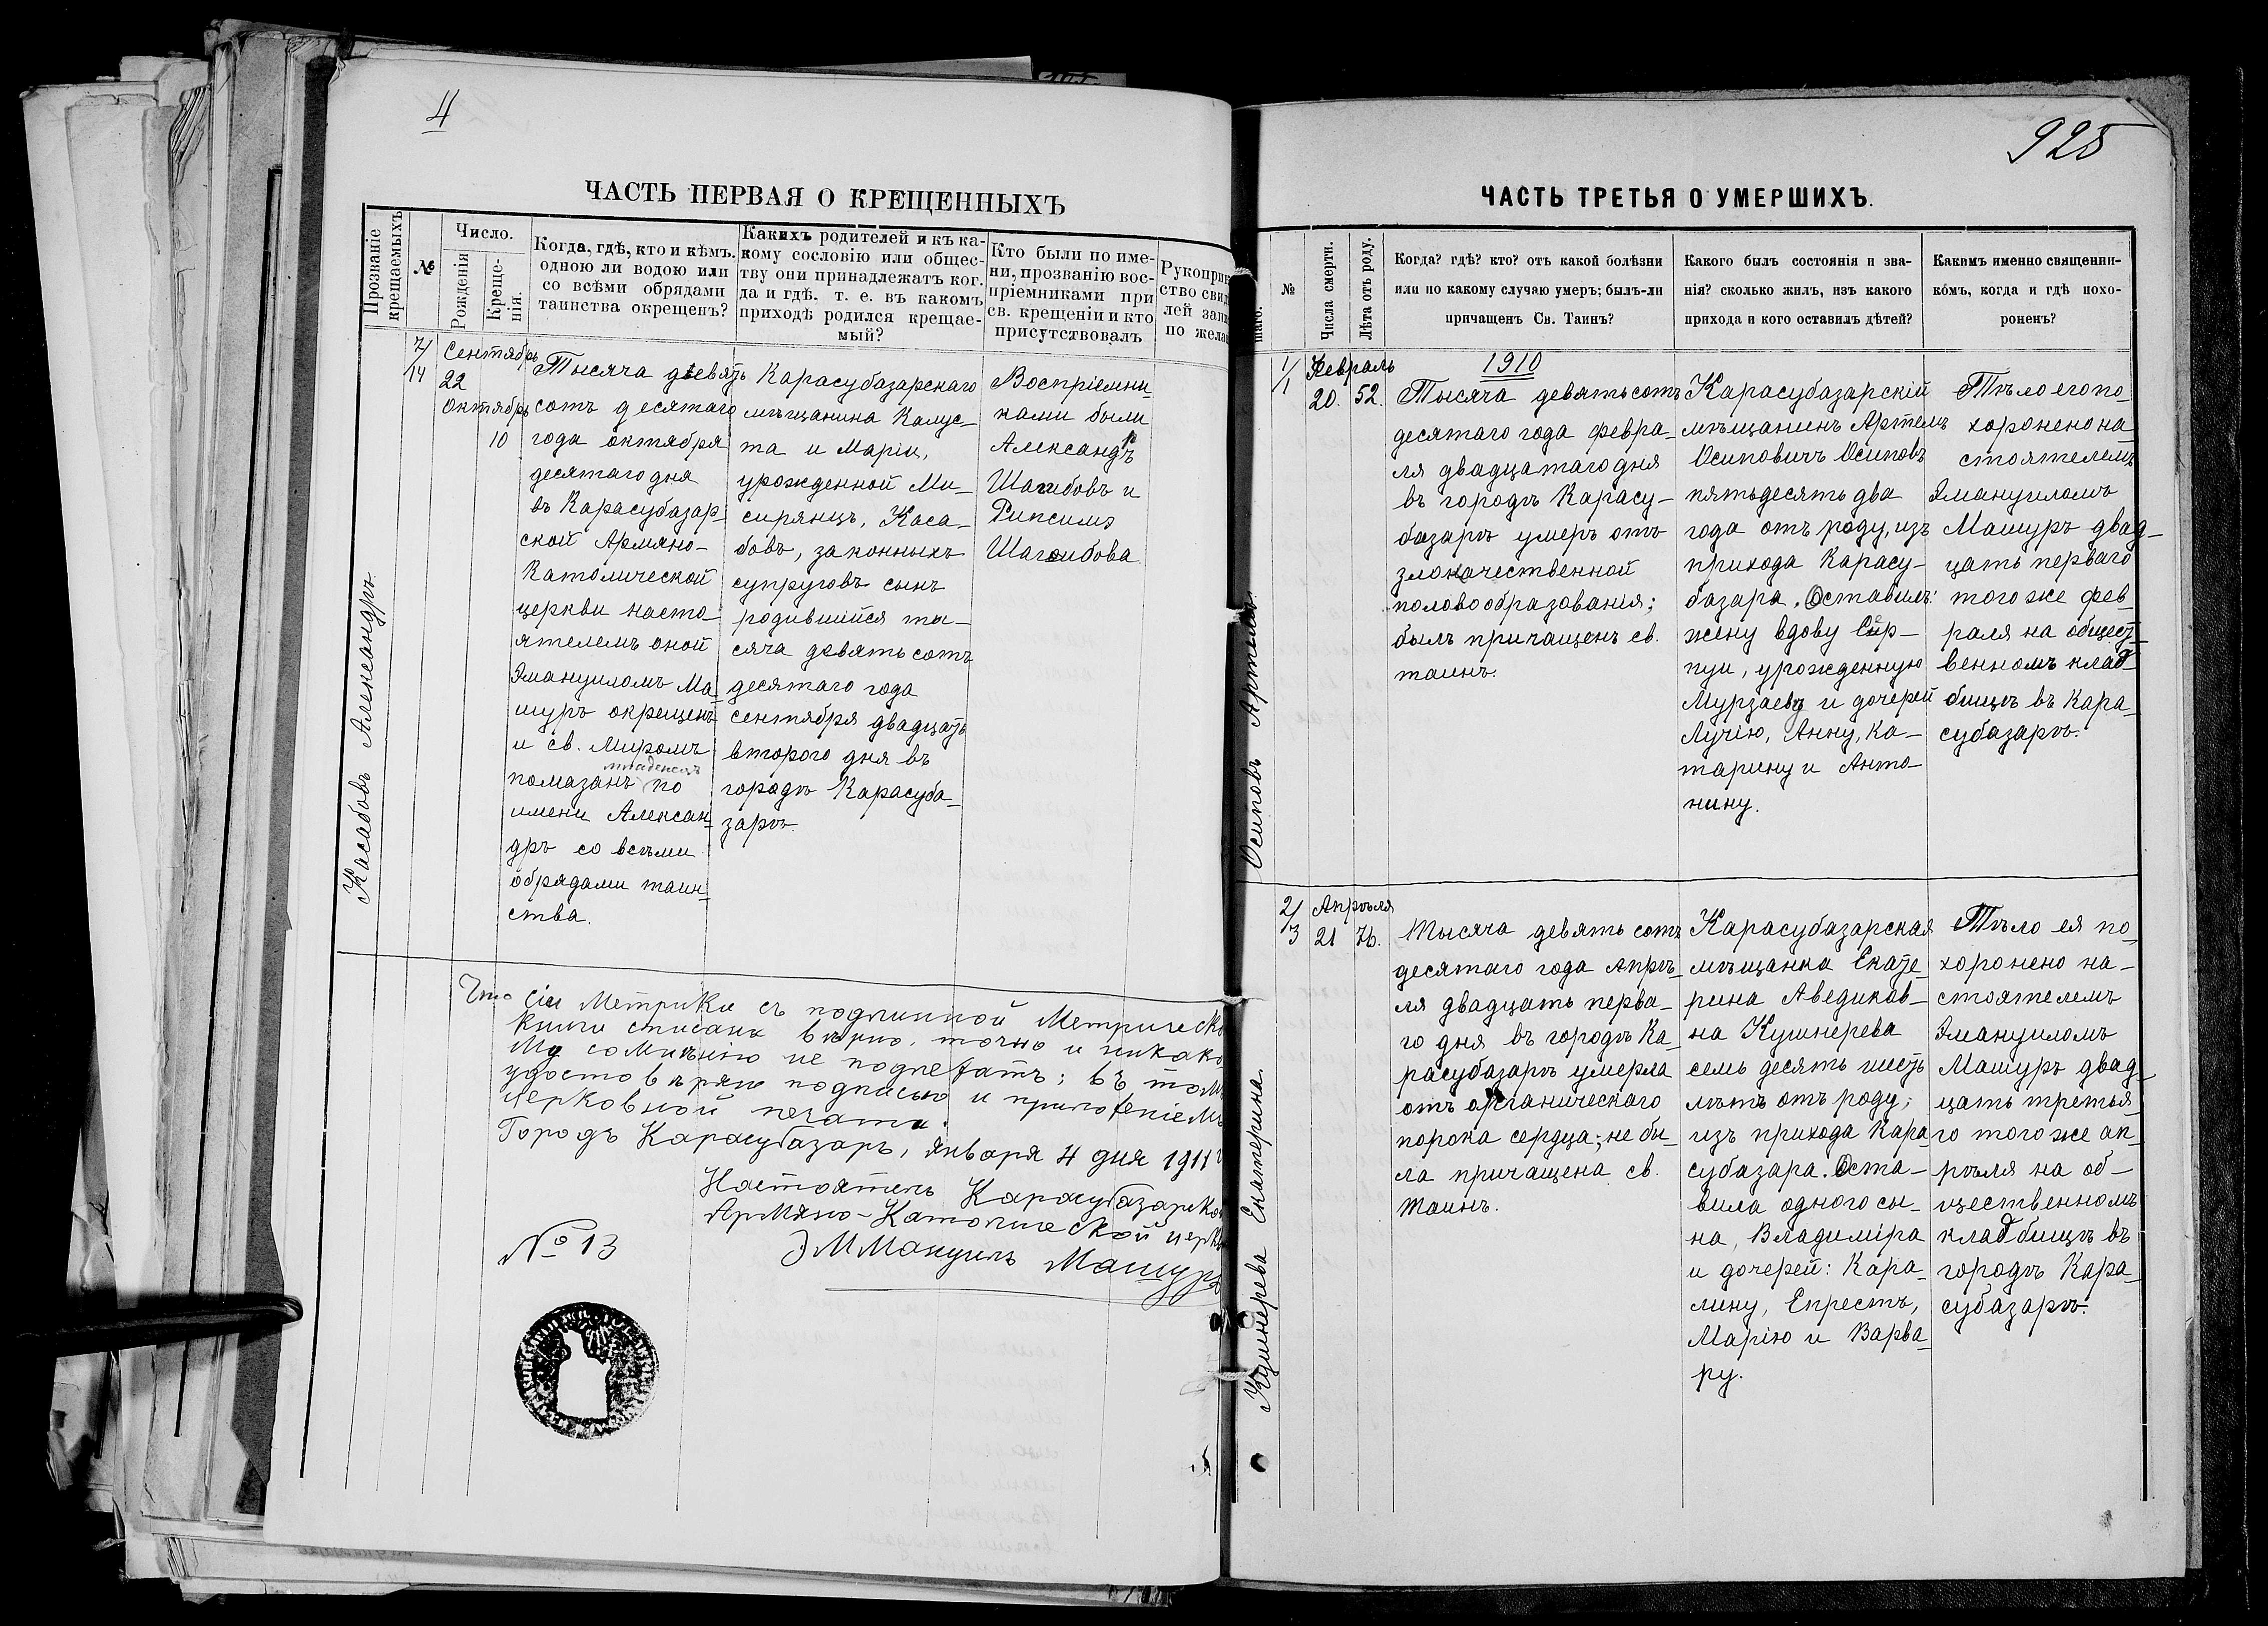 4
ЧАСТЬ ПЕРВАЯ О КРЕЩЕННЫХЪ
Прозваніе
крещаемыхъ
№
Число.
Рожденія
Креще-
нія.
Когда, гдѣ, кто и кѣмъ.
одною ли водою или
со всѣми обрядами
таинства окрещенъ?
Какихъ родителей и къ ка-
кому сословію или общес-
тву они принадлежатъ ког.
да и гдѣ. т. е. въ какомъ
приходѣ родился крещае-
мый?
Кто были по име-
ни, прозванію вос-
пріемниками при
св. крещеніи и кто
присутствовалъ
Рукоприк
ство свид
лей запи
по желан
Касабовъ Александръ
7/14
Сентябрь
22
Октябрь
10
Тысяча девять
сотъ десятаго
года октября
десятаго дня
въ Карасубазар-
ской Армяно-
Католической
церкви насто-
ятелемъ оной
Эмануиломъ Ма-
шуръ окрещенъ
и св. Миромъ
младенецъ
помазанъ по
имени Алексан-
дръ со всѣми
обрядами таин-
ства.
Карасубазарскаго
мѣщанина Калус-
та и Маріи,
урожденной Ми-
сирянцъ, Каса-
бовъ, законныхъ
супруговъ сынъ
родившійся ты-
сяча девять сотъ
десятаго года
сентября двадцать
второго дня въ
городѣ Карасуба-
зарѣ.
Воспріемни-
ками были
Александръ
Шагибовъ и
Рипсимэ
Шагибова
Что сіи Метрики съ подлинной Метрическ
книги списаны вѣрно, точно и никако
му сомнѣнію не подлежатъ; въ томъ
удостовѣряю подписью и приложеніемъ
церковной печати.
Городъ Карасубазаръ, Января 4 дня 1911 г
Настоятель Карасубазарско
Армяно-Католической церкв
№ 13
Эммануилъ Машуръ
925
ЧАСТЬ ТРЕТЬЯ О УМЕРШИХЪ.
шаго.
№
Числа смерти.
Лѣта отъ роду.
Когда? гдѣ? кто? отъ какой болѣзни
или по какому случаю умеръ; былъ-ли
причащенъ Св. Таинъ?
Какого былъ состоянія и зва-
нія? сколько жилъ, изъ какого
прихода и кого оставилъ дѣтей?
Какимъ именно священни-
ко́мъ, когда и гдѣ похо-
роненъ?
Осиповъ Артемъ.
1/1
Февраль
20. 52.
1910
Тысяча девятьсотъ
десятаго года февра-
ля двадцатаго дня
въ городѣ Карасу-
базарѣ умеръ отъ
злокачественной
половообразованія;
былъ причащенъ св.
таинъ.
Карасубазарскій
мѣщанинъ Артемъ
Осиповичъ Осиповъ
пятьдесять два
года отъ роду, изъ
прихода Карасу-
базара. Оставилъ:
жену вдову Сир-
пуи, урожденную
Мурзаеву и дочерей
Лучію, Анну, Ка-
тарину и Анто-
нину.
Тѣло его по-
хоронено на-
стоятелемъ
Эмануиломъ
Машуръ двад-
цать перваго
того же фев-
раля на общест-
венномъ клад-
бищѣ въ Кара-
субазарѣ.
Кушнерева Екатерина.
2/3
Апрѣля
21 76.
Тысяча девять сотъ
десятаго года Апрѣ-
ля двадцать перва-
го дня въ городѣ Ка-
расубазарѣ умерла
отъ органическаго
порока сердца; не бы-
ла причащена св.
Таинъ.
Карасубазарская
мѣщанка Екате-
рина Аведиков-
на Кушнерева
семь десять шесть
лѣтъ отъ роду;
изъ прихода Кара-
субазара. Оста-
вила одного сы-
на, Владиміра
и дочерей: Кара-
лину, Епрестъ,
Марію и Варва-
ру.
Тѣло ея по-
хоронено на-
стоятелемъ
Эмануиломъ
Машуръ двад-
цать третья-
го того же ап-
рѣля на об-
щественномъ
кладбищѣ въ
городѣ Кара-
субазарѣ.